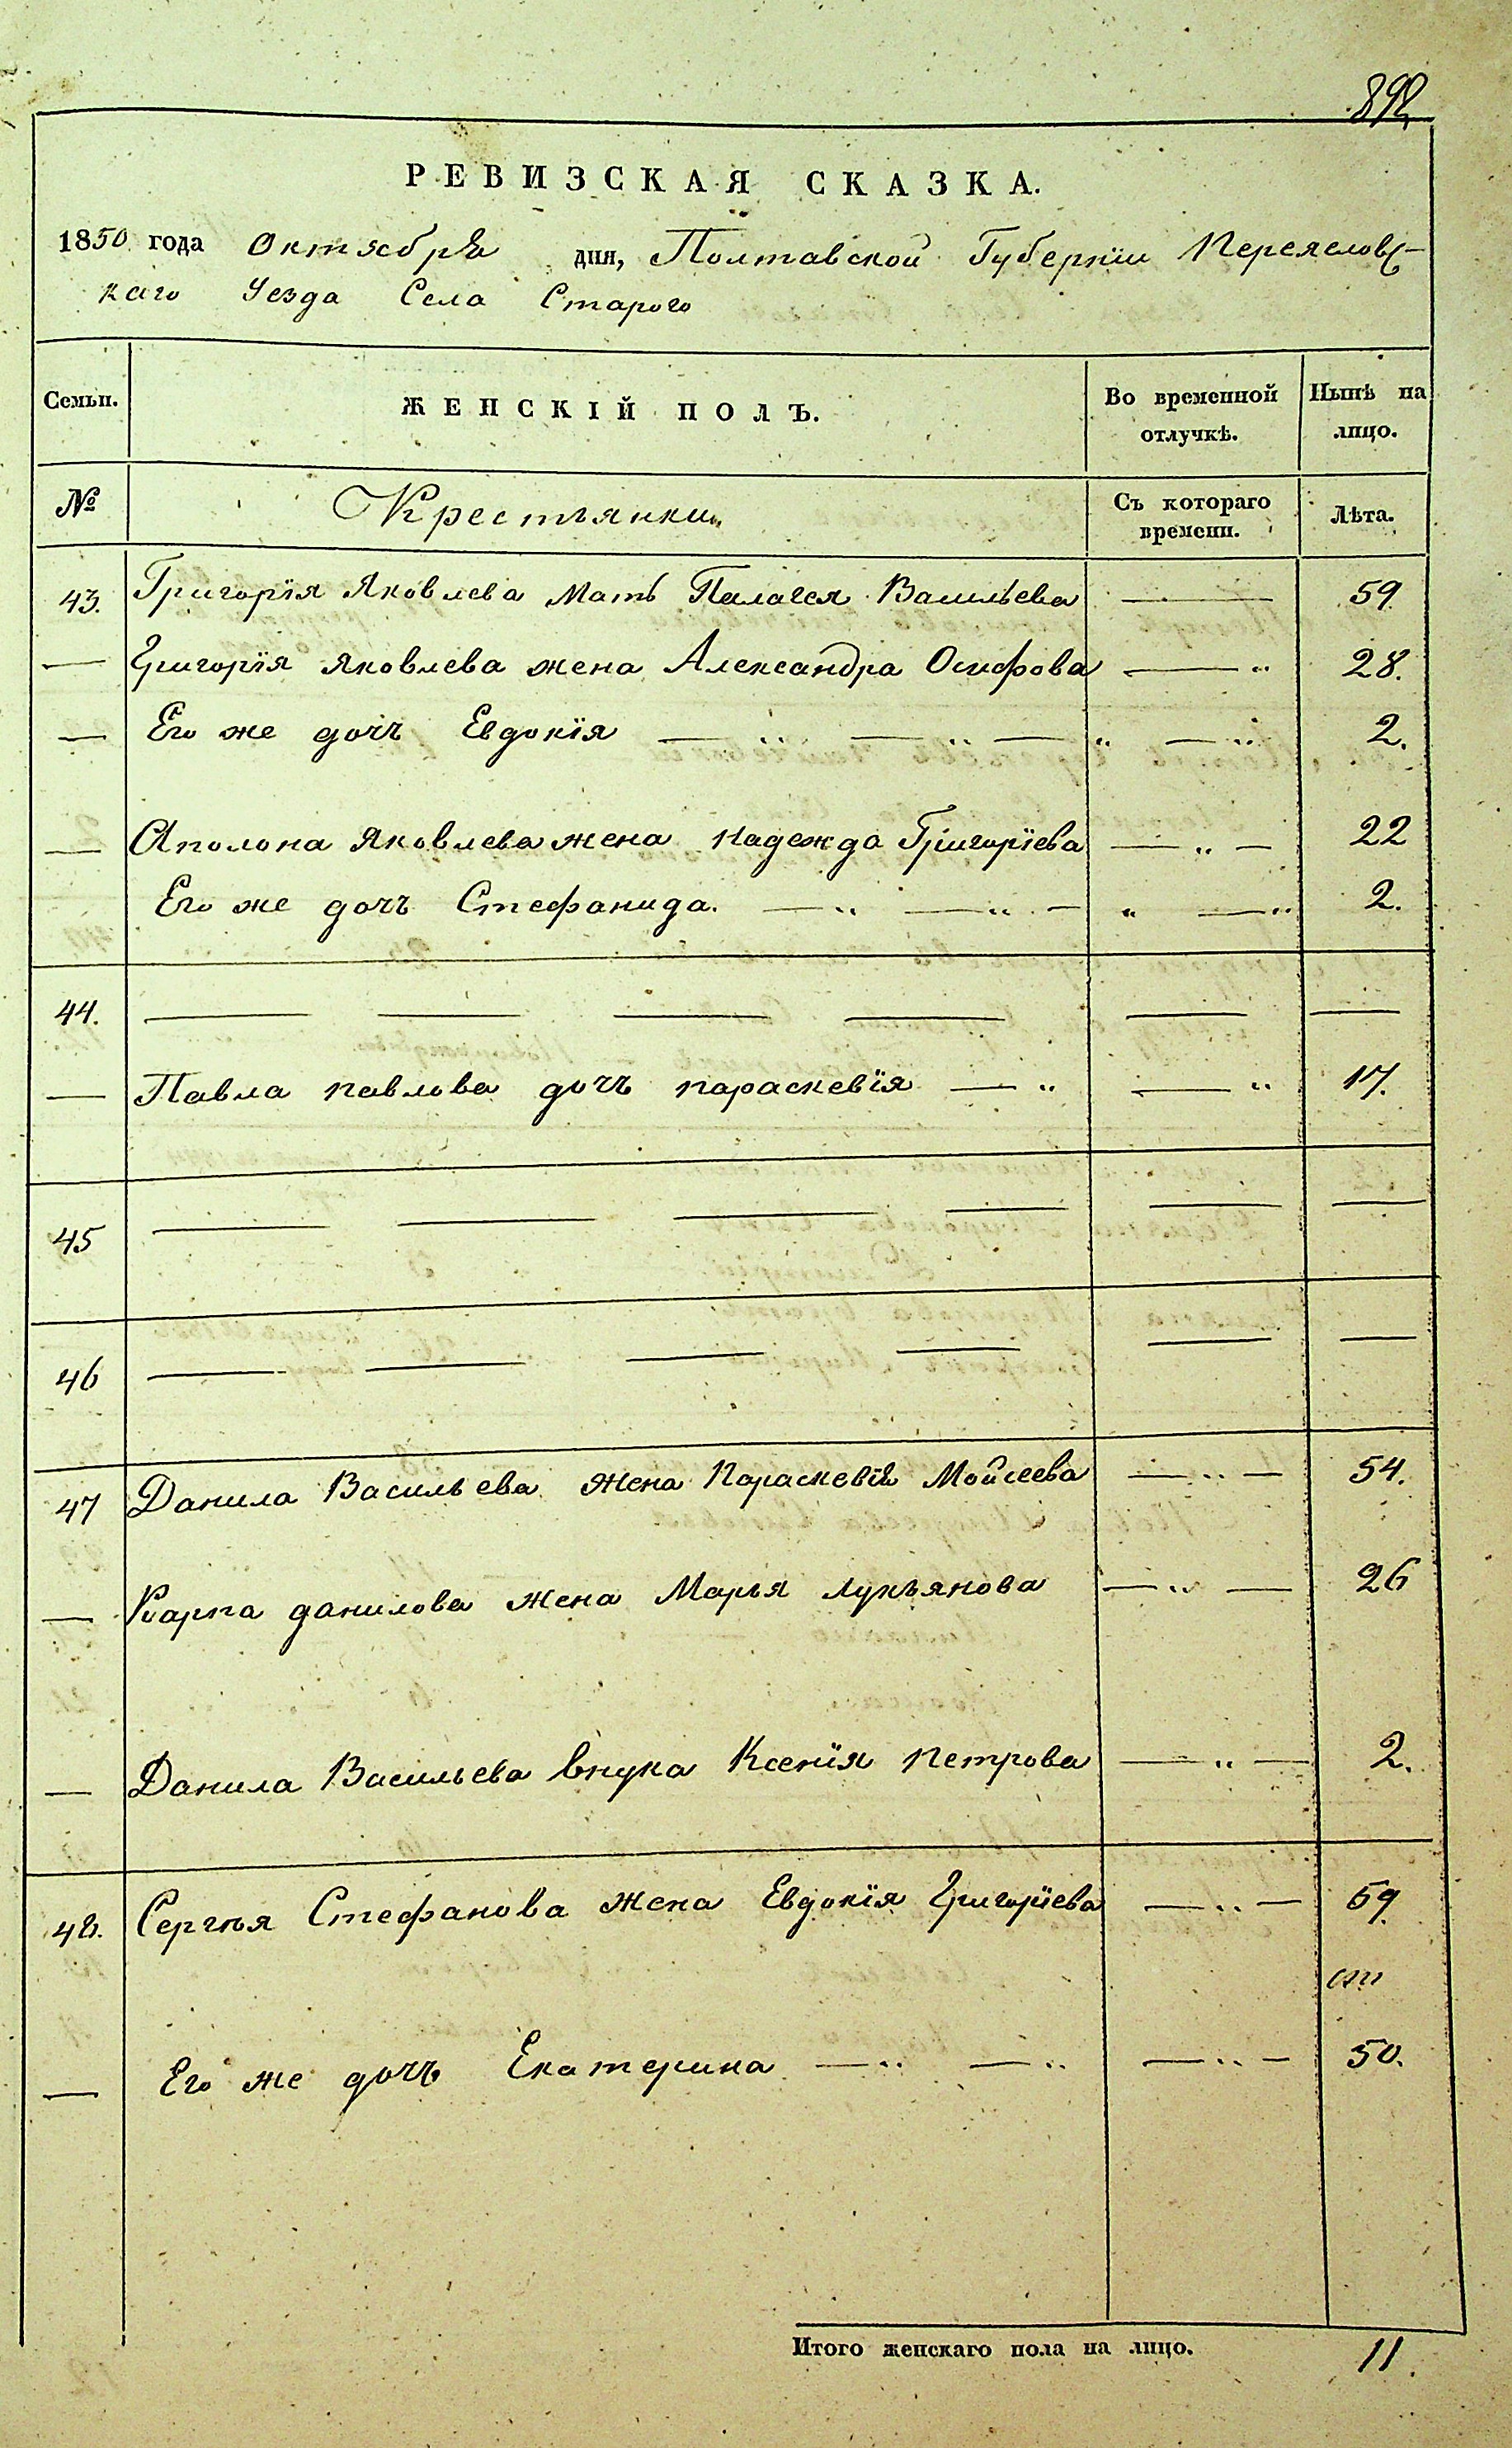 892
РЕВИЗСКАЯ СКАЗКА.
1850 года Октября дня, Полтавской Губерніи Переяславс-
каго Уезда Села Старого
Семьи. ЖЕНСКІЙ ПОЛЪ. Во временной отлучкѣ. Нынѣ на лицо.
№ Крестьянки Съ котораго времени. Лѣта.
43. Григорія Яковлева Мать Палагея Васильева — 59
— Григорія Яковлева жена Александра Осифова — „ 28.
— Его же дочъ Евдокія — „ — „ — „ — „ 2.
— Аполона Яковлева жена Надежда Григоріева — „ — 22
Его же дочъ Стефанида. — „ — „ — „ — „ 2.
44. — — — — — —
— Павла павлова дочъ параскевія — „ — „ 17.
45 — — — — — —
46 — — — — — —
47 Данила Васильева жена Параскевія Мойсеева — „ — 54.
— Карпа данилова жена Марья Лукъянова — „ — 26
— Данила Васильева внука Ксенія Петрова — „ — 2.
48. Сергѣя Стефанова жена Евдокія Григоріева — „ — 59.
— Его же дочъ Екатерина — „ — „ — „ — 50.
Итого женскаго пола на лицо. 11.